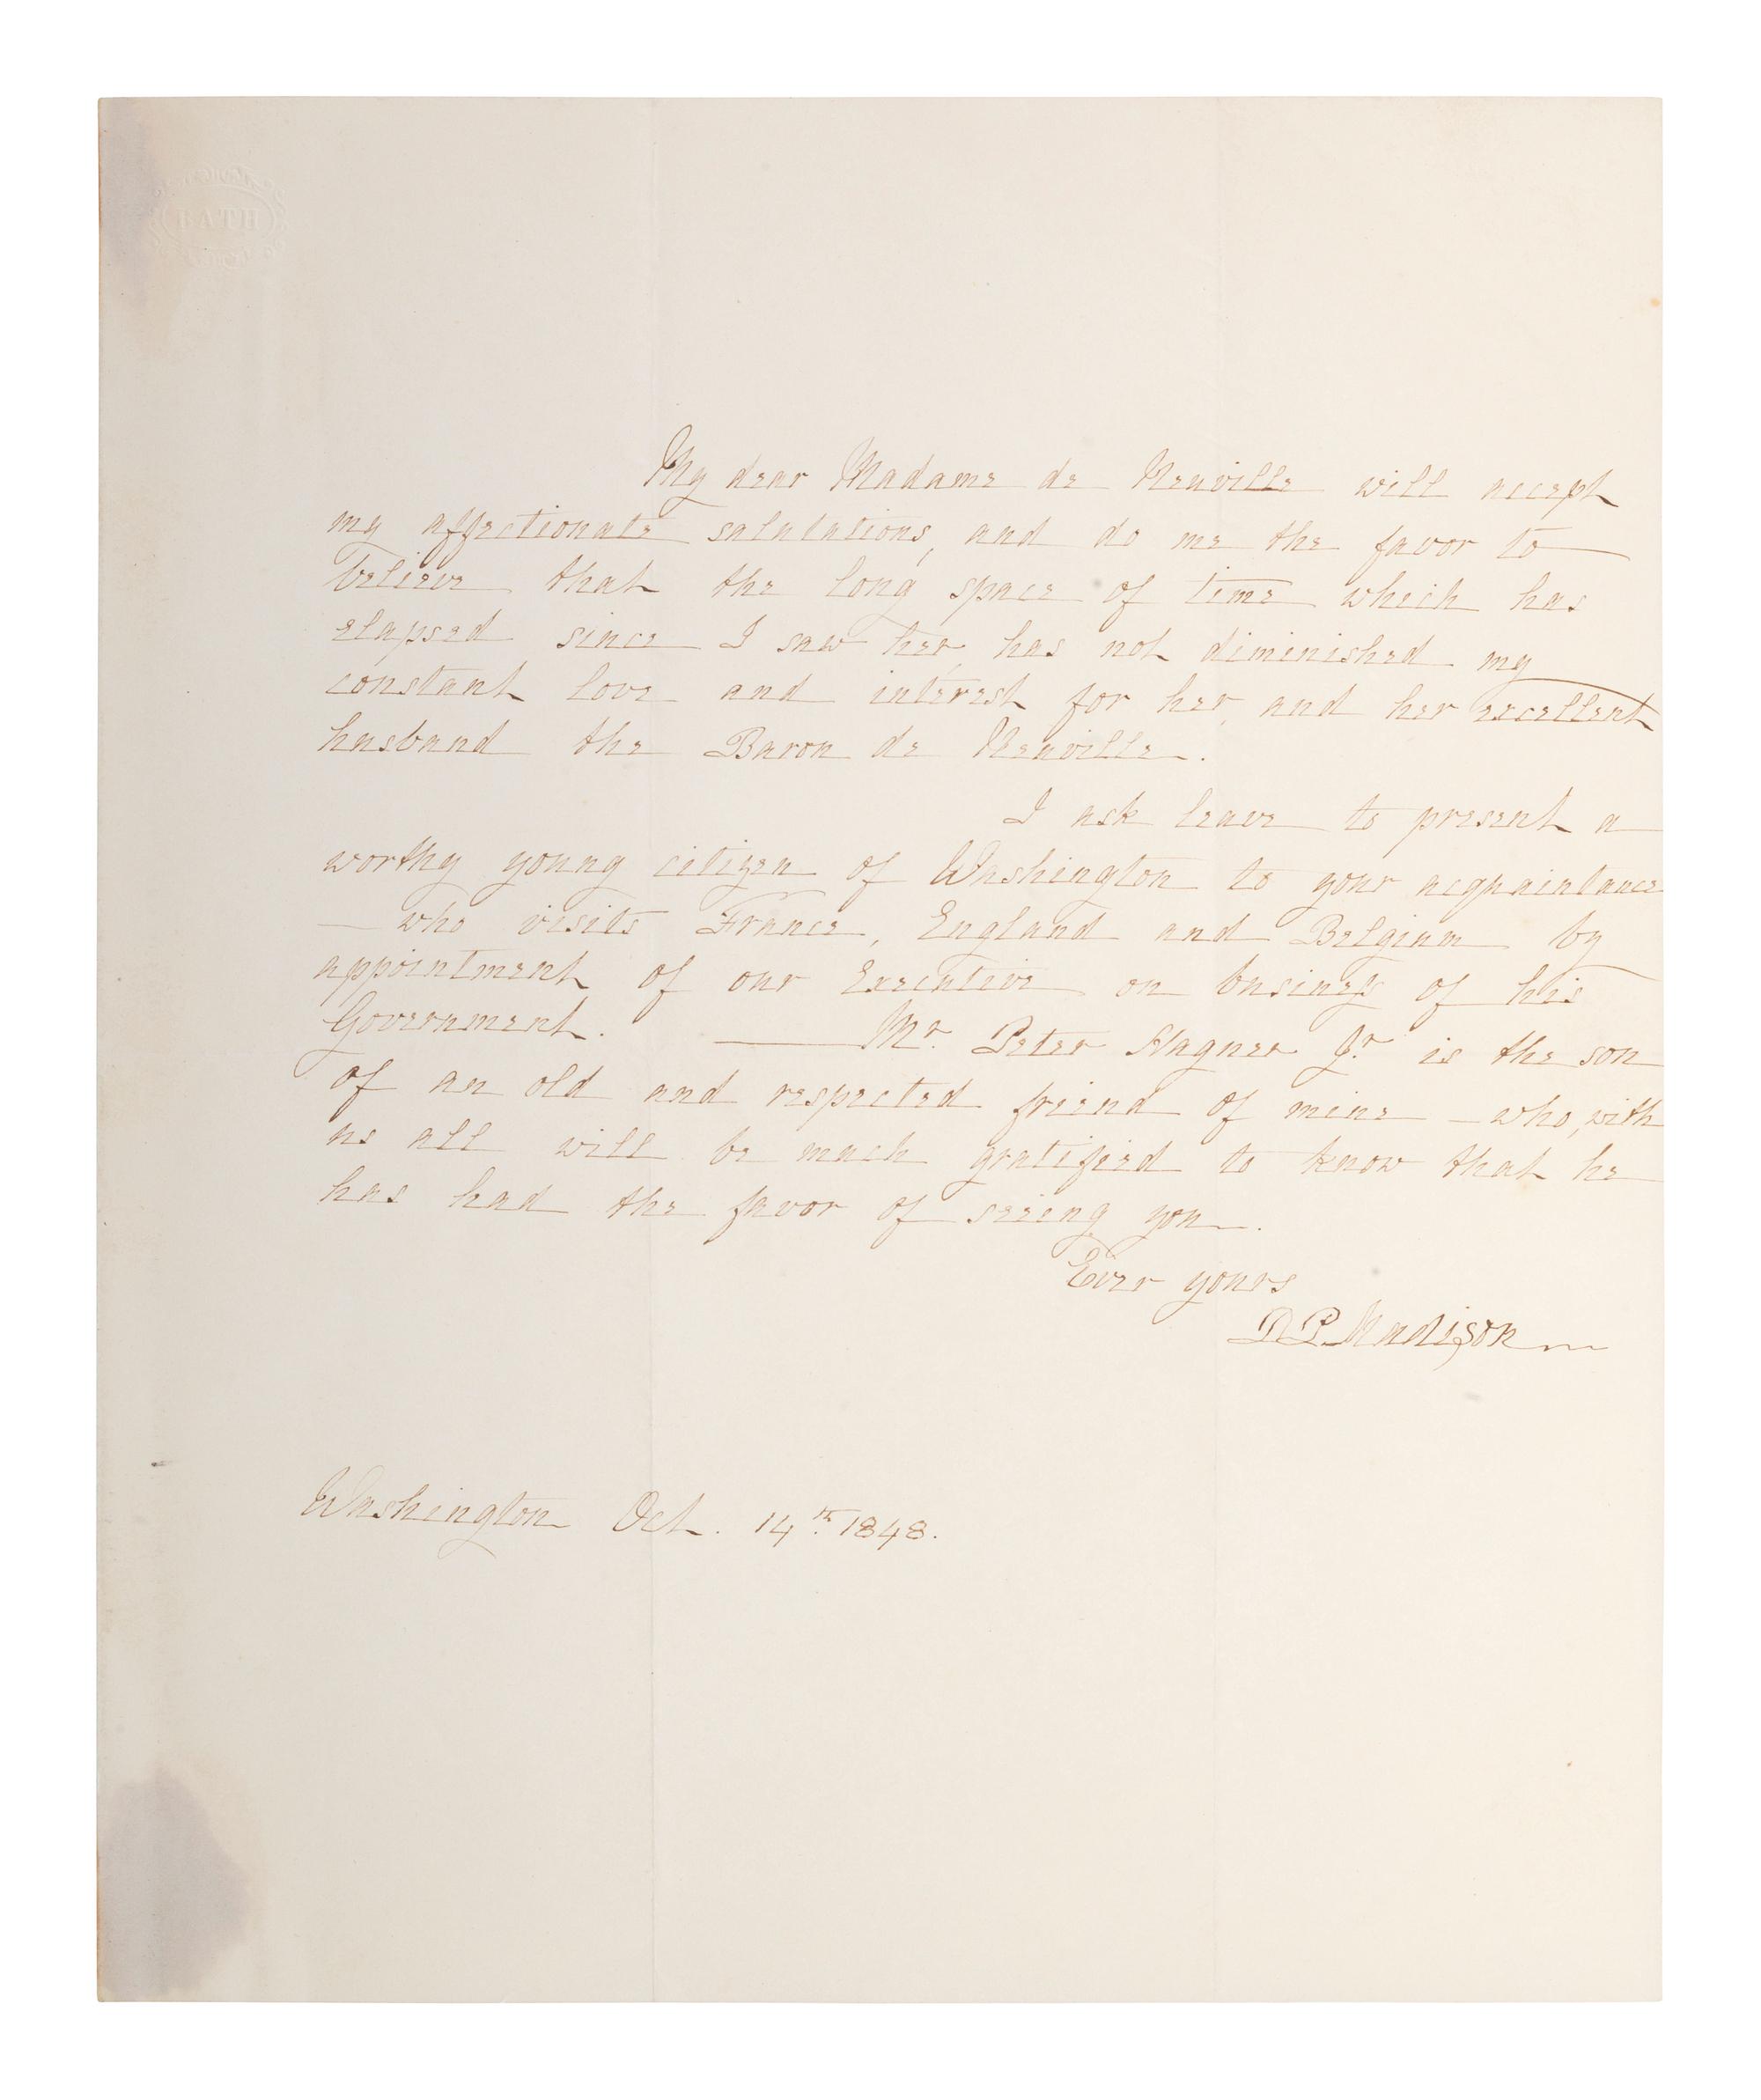 BATH
My dear Madame de Neuville will accept
my affectionate salutations, and do me the favor to
believe that the long space of time which has
elapsed since I saw her, has not diminished my
constant love and interest for her, and her excellent
husband the Baron de Neuville.
I ask leave to present a
worthy young citizen of Washington to your acquaintance
— who visits France, England and Belgium by
appointment of our Executive on business of his
Government. — Mr. Peter Hagner Jr. is the son
of an old and respected friend of mine — who, with
us all will be much gratified to know that he
has had the favor of seeing you.
Ever yours
D P Madison
Washington Oct. 14th 1848.